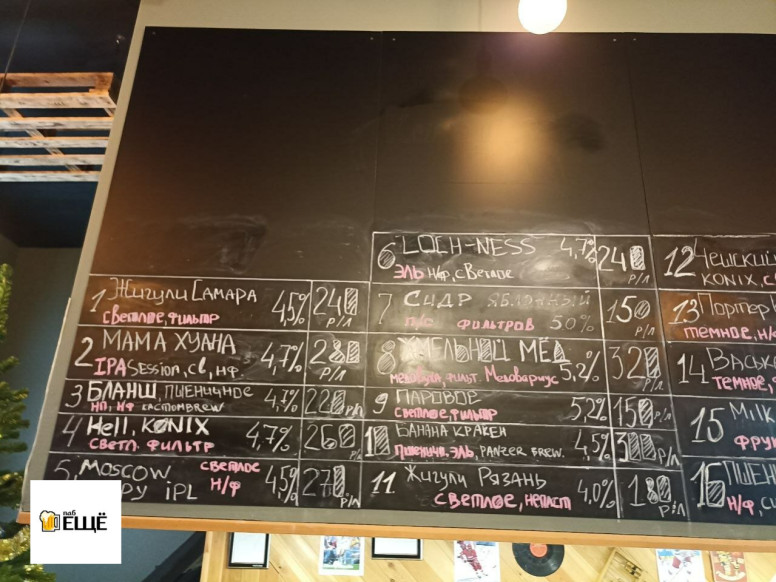 1 Жигули Самара 4,5% 240 р/л
светлое, фильтр
2 МАМА ХУАНА 4,7% 280 р/л
IPA Session, св, нф.
3 БЛАНШ, ПШЕНИЧНОЕ 4,7% 220 р/л
НП, НФ КАСТОМBREW
4 Hell, KONIX 4,7% 260 р/л
СВЕТЛ. ФИЛЬТР
5, MOSCOW СВЕТЛОЕ 4,5% 270
IPL Н/Ф
6 LOCH-NESS 4,7% 240 р/л
ЭЛЬ Н/Ф, СВЕТЛОЕ
7 СИДР ЯБЛОЧНЫЙ 150 р/л
П/С ФИЛЬТРОВ 5.0%
8 ХМЕЛЬНОЙ МЁД 5,2% 320 р/л
МЕДОВУХА, ФИЛЬТ. Медовариус
9 ПАРОВОР 5,2% 150 р/л
СВЕТЛОЕ, ФИЛЬТР
10 БАНАНА КРАКЕН 4,5% 300 р/л
ПШЕНИЧН. ЭЛЬ, PANZER BREW.
11 Жигули Рязань 4,0% 180 р/л
СВЕТЛОЕ, НЕПАСТ
12 Чешский
KONIX, С
13 Портер
ТЕМНОЕ, Н/
14 ВАСЬК
ТЕМНОЕ,
15 Milk
ФРУ
16 ПШЕН
Н/Ф,
паб
ЕЩЁ